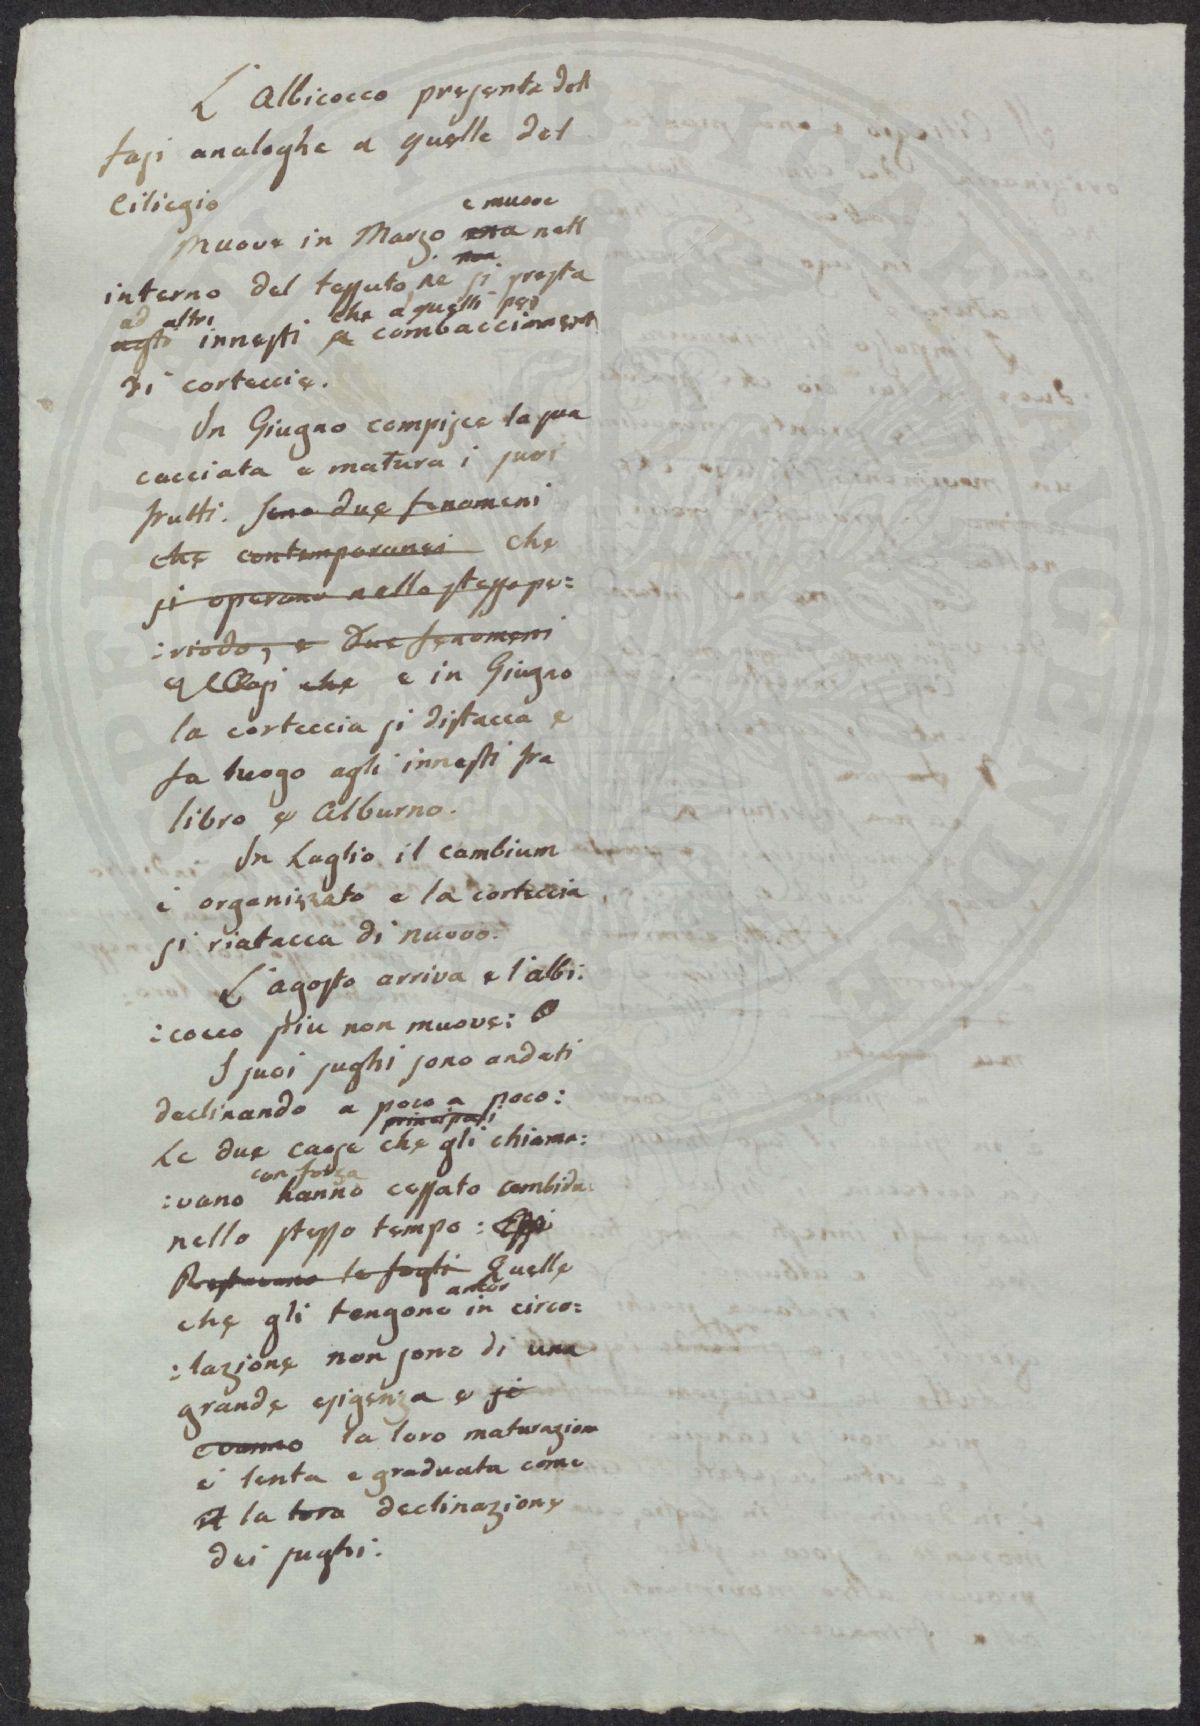 L'Albicocco presenta dell
fasi analoghe a quelle del
Ciliegio
e muove
Muove in Marzo ma nell
non
interno del tessuto, ne si presta
ad altri che a quelli per
agli innesti a combacciament
di corteccie.
In Giugno compisce la sua
cacciata e matura i suoi
frutti. Sono due fenomeni
che contemporanei che
si operano nello stesso pe:
:riodo, e due fenomeni
che e in Giugno
la corteccia si distacca e
fa luogo agli innesti fra
libro e Alburno.
In Luglio il cambium
è organizzato e la corteccia
si riatacca di nuovo.
L'agosto arriva e l'albi:
:cocco piu non muove:
I suoi sughi sono andati
declinando a poco a poco:
principali
Le due cause che gli chiama:
con forza
:vano hanno cessato ambidu
nello stesso tempo: Essi
Restavano le fogli Quelle
ancor
che gli tengono in circo:
:lazione non sono di una
grande esigenza e si
la loro maturazion
è lenta e graduata come
il la loro declinazione
dei sughi.